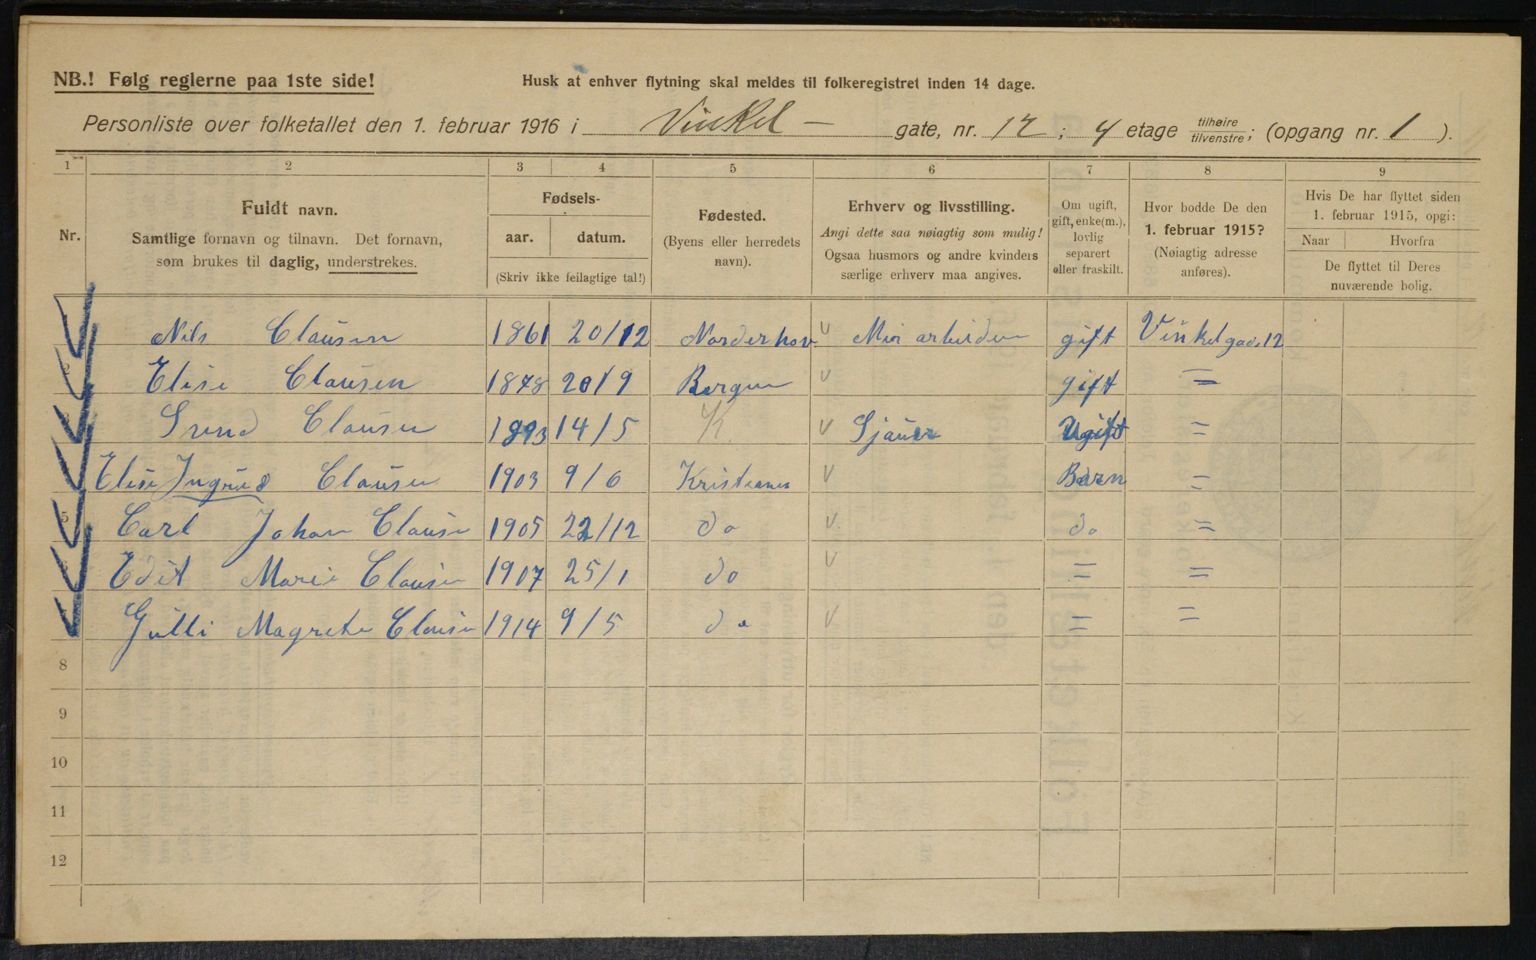 NB.! Følg reglerne paa 1ste side!
Husk at enhver flytning skal meldes til folkeregistret inden 14 dage.
Personliste over folketallet den 1. februar 1916 i Vinkel - gate, nr. 12 ; 4 etage tilhøire tilvenstre; (opgang nr. 1 ).
1 2 3 4 5 6 7 8 9
Nr.
Fuldt navn.
Samtlige fornavn og tilnavn. Det fornavn,
som brukes til daglig, understrekes.
Fødsels-
aar. datum.
(Skriv ikke feilagtige tal!)
Fødested.
(Byens eller herredets
navn).
Erhverv og livsstilling.
Angi dette saa nøiagtig som mulig!
Ogsaa husmors og andre kvinders
særlige erhverv maa angives.
Om ugift,
gift, enke(m.),
lovlig
separert
eller fraskilt.
Hvor bodde De den
1. februar 1915?
(Nøiagtig adresse
anføres).
Hvis De har flyttet siden
1. februar 1915, opgi:
Naar Hvorfra
De flyttet til Deres
nuværende bolig.
Nils Clausen 1861 20/12 Norderhov v arbeider gift Vinkelgad. 12
Elise Clausen 1878 20/9 Bergen v gift =
Svend Clausen 1893 14/5 K. v Sjauer Ugift =
Elise Ingrid Clausen 1903 9/6 Kristiania v Barn =
5 Carl Johan Clausen 1905 22/12 do v do =
Edit Marie Clausen 1907 25/1 do v = =
Gulli Magrete Clausen 1914 9/5 do v = =
8
9
10
11
12